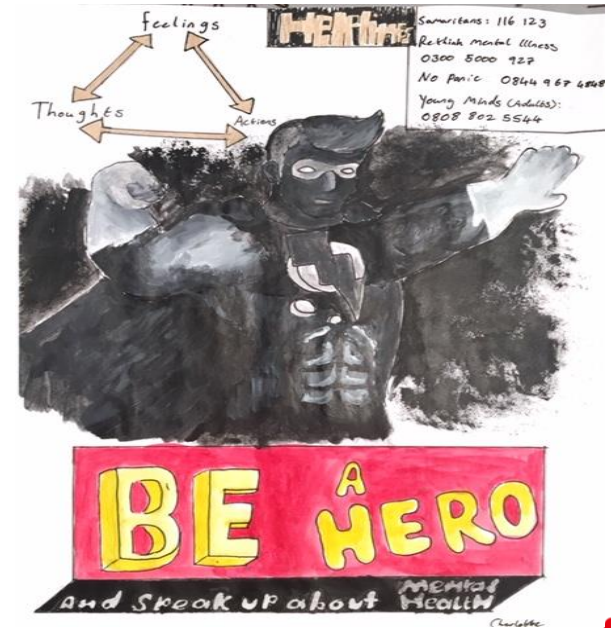 feelings
Thoughts
Actions
Helplines
Samaritans: 116 123
Rethink Mental Illness
0300 5000 927
No Panic 0844 967 4848
Young Minds (Adults):
0808 802 5544
BE A HERO
And speak up about Mental Health
Charlotte